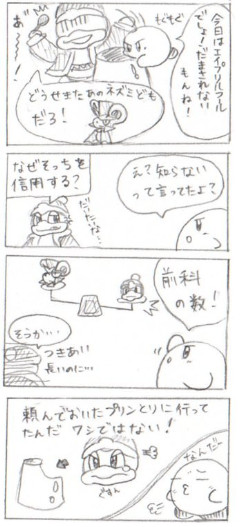 今日は
エイプリルフール
でしょ!だまされない
もんね!
もぐもぐ
あ゛〜〜!
どうせまたあのネズミども
だろ!
なぜそっちを
信用する?
え?知らない
って言ってたよ?
前科
の数!
そうか…
つきあい
長いのに…
頼んでおいたプリンとりに行って
たんだ ワシではない!
なんだー